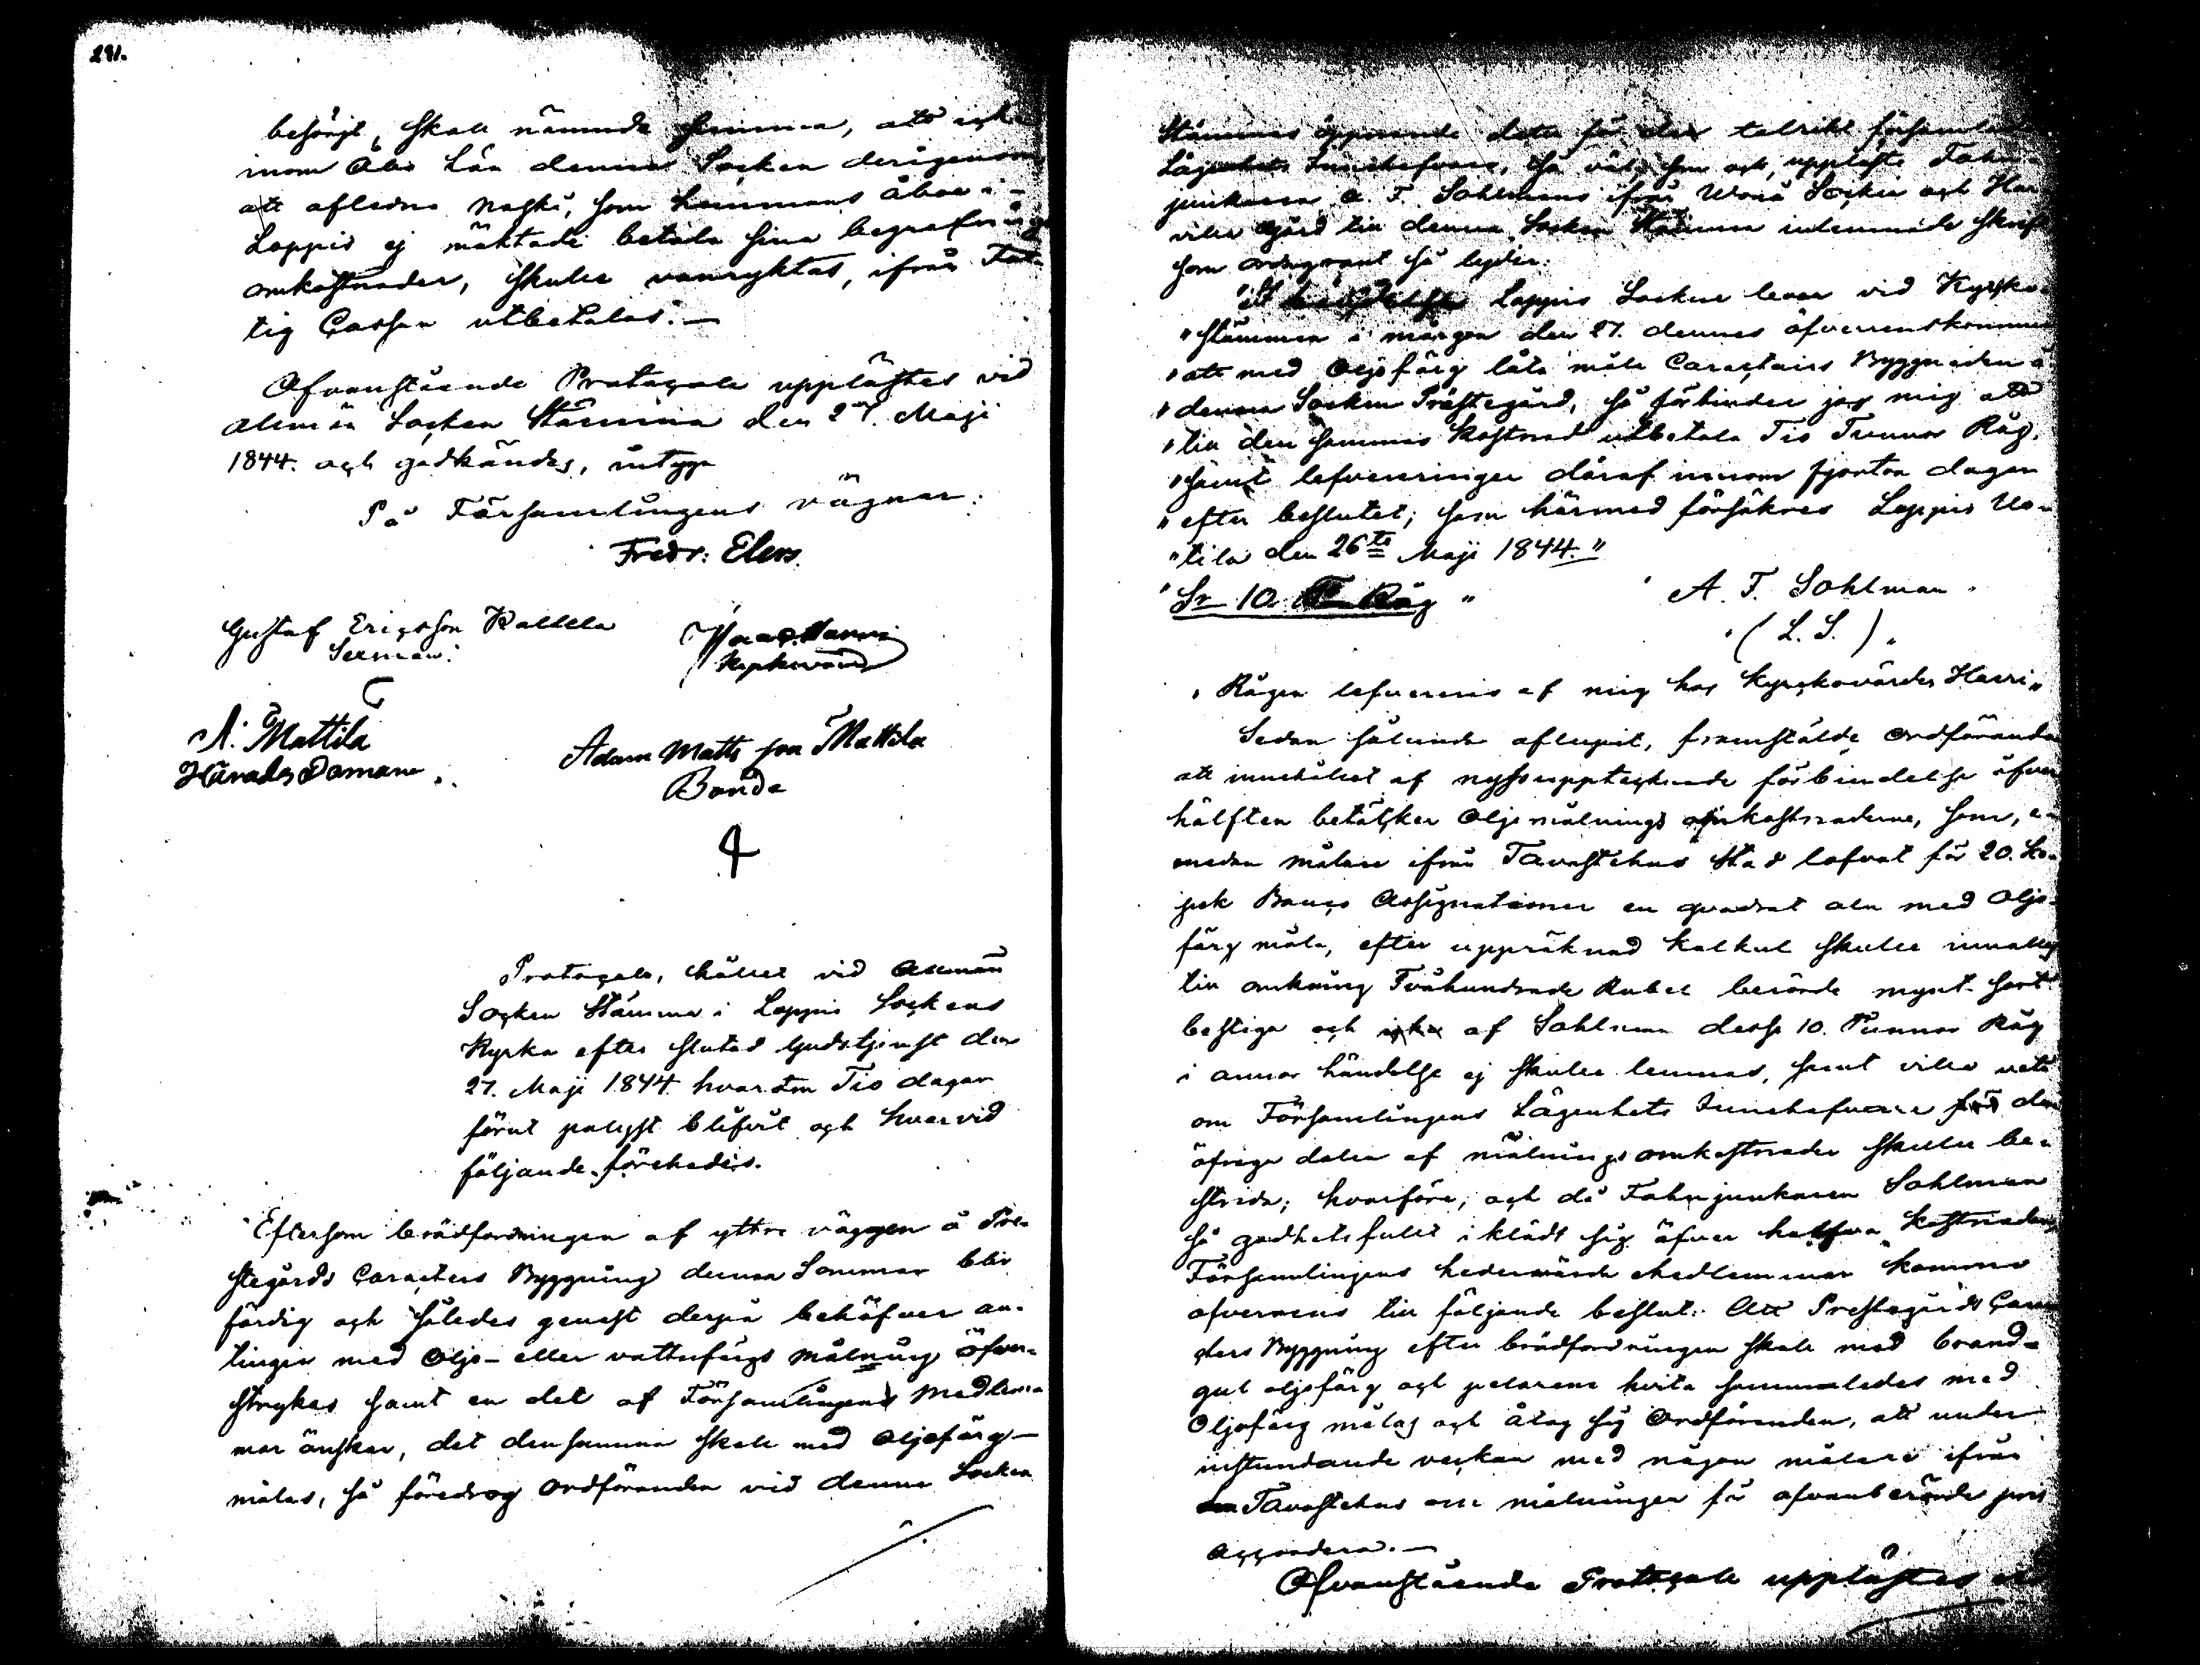 281.
besörgt, skall nämnde summa, att icke
inom Åbo Län denna Socken derigenom
att afledne nagki, som hemmans åboe i
Loppis ej mäktade betala sina begrafnings
omkostnader, skulle vanryktas, ifrån Fat-
tig Cassan utbetalas.—
Ofvanstående Protocoll upplästes vid
almän Socken Stämma den 27. Maji
1844. och godkändes, intyga
På Församlingens vägnar:
Fredr: Elers.
Gustaf Ericsson Kallela
Sexman.
Harri
Kyrkovärd
A: Mattila
Härads Domare.
Adam Matts son Mattila
Bonde
Protocoll, hållet vid Allmän
Socken Stämma i Loppis Sockens
Kyrka efter slutad Gudstjenst den
27. Maji 1844. hvartom Tio dagar
förut pålyst blifvit och hvarvid
följande förehades.
Eftersom brädfordningen af yttre väggen å Pre-
stegårds Caracters Byggning denna Sommar blir
färdig och således genast derpå behöfver an-
tingen med Olje- eller vattufärgs målning öfver-
strykas samt en del af Församlingens Medlem-
mar önskar, det densamma skall med Oljefärg
målas, så föredrog Ordföranden vid denna Socken
Stämmas öppnande detta för den talrikt församlade
Lägenhets Innehafvare, så väl, som ock, upplästs Fahn-
junkaren A. F. Sohlmans ifrån Wånå Socken och Har-
viala Gård till denna Socken Stämma inlemnade skrift
som ordagrant så lyder:
"Loppis Socknes boer vid Kyrko-
"stämman i morgon den 27. dennes öfverenskommer
"att med Oljefärg låta måla Caractairs Byggnaden å
"denna Socken Prästegård, så förbinder jag mig att
"till den sammas kostnad utbetala Tio Tunnor Råg,
"samt lefvereringen däraf innom fjorton dagar
"efter beslutet; som härmed försäkras Loppis Uo-
"tila den 26te Maji 1844."
"Sr 10 Råg"
"A. F. Sohlman.
"(L. S.)"
"Rågen lefvereras af mig hos Kyrckovärden Harri"
Sedan sålunda aflupit, framstälde Ordföranden
att innehållet af nyss upptecknade förbindelse öfver
hälften betäcker Oljemålnings omkostnaderne, som, e-
medan Målare ifrån Tavastehus Stad lofvat för 20. Ko-
pek Banco Assignationer en qvadrat aln med Olje-
färg måla, efter uppräknad kalkul skulle
till omkring Tvåhundrade Rubel berörde mynt sort
bestiga och af Sohlman desse 10. Tunnor Råg
i annor händelse ej skulle lemnas, samt ville veta
om Församlingens Lägenhets Innehafvare för den
öfriga delen af målnings omkostnader skulle be-
strida; hvarföre, och då Fahnjunkaren Sohlman
så godhetsfullt iklädt sig öfver halfva kostnaden,
Församlingens hedervärda medlemmar kommo
öfverens till följande beslut: Att Prestegårds Carac-
ters Byggning efter brädfordningen skall med brand-
gul oljefärg och pelarene hvita sammaledes med
Oljefärg målas och åtog sig Ordföranden, att under
instundande veckan med någon målare ifrån
Tavastehus om målningen för ofvanberörde pris
accordera.—
Ofvanstående Protocoll upplästes